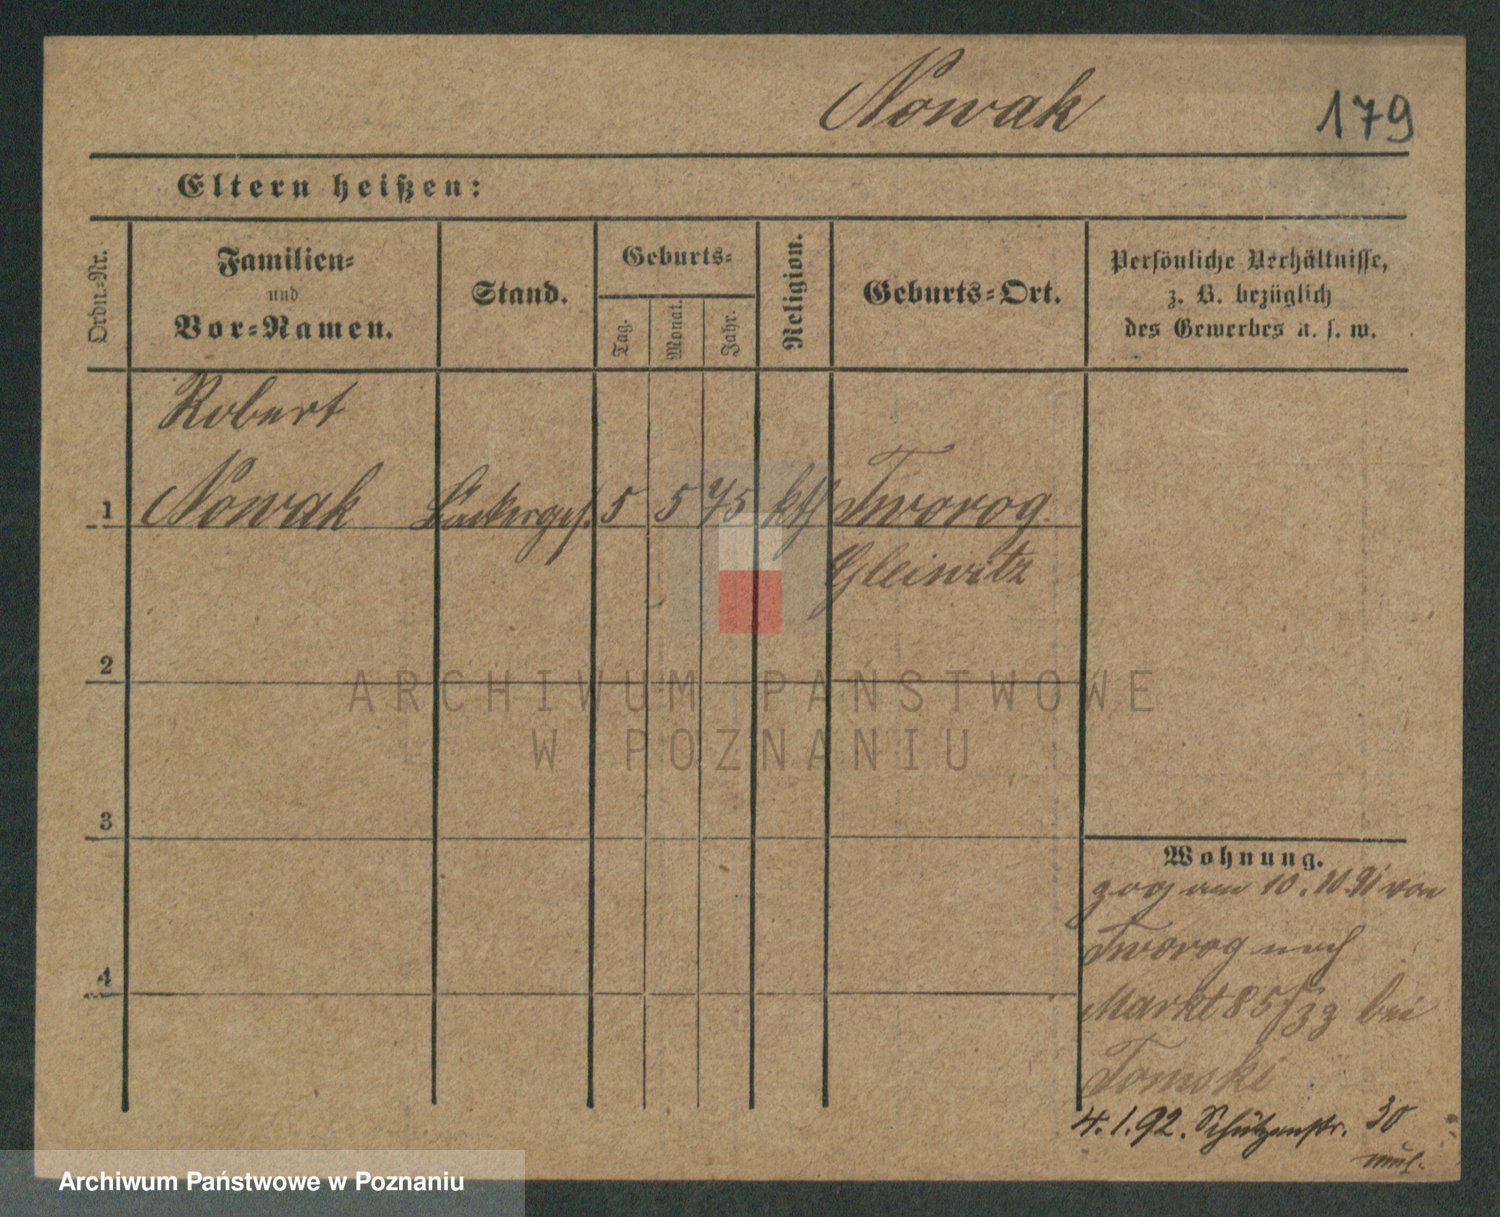 Nowak
179
Eltern heißen:
Ordn.-Nr.
Familien-
und
Vor-Namen.
Stand.
Geburts-
Tag.
Monat.
Jahr.
Religion.
Geburts-Ort.
Persönliche Verhältnisse,
z. B. bezüglich
des Gewerbes u. s. w.
Robert
1 Nowak Bäckerges. 5 5 75 kth Tworog
Gleiwitz
2
3
4
Wohnung.
zog am 10. 10. 91 von
Tworog nach
Markt 85/ bei
Tomski
4.1.92. Schützenstr. 30
ARCHIWUM PAŃSTWOWE
W POZNANIU
Archiwum Państwowe w Poznaniu